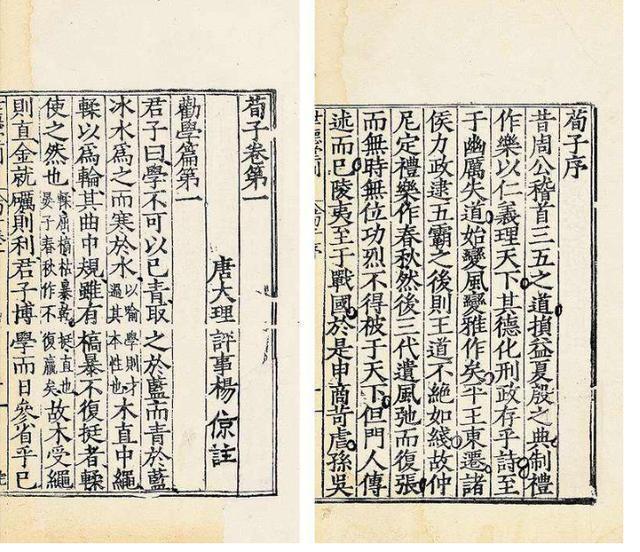 荀子序
昔周公稽首三五之道損益夏殷之典制禮
作樂以仁義理天下其德化刑政存乎詩至
于幽厲失道始變風變雅作矣平王東遷諸
侯力政逮五霸之後則王道不絕如綫故仲
尼定禮樂作春秋然後三代遺風弛而復張
而無時無位功烈不得被于天下但門人傳
述而已陵夷至于戰國於是申商苛虐孫吳
荀子卷第一
唐大理評事楊倞註
勸學篇第一
君子曰學不可以已青取之於藍而青於藍
冰水爲之而寒於水以喻學則才過其本性也木直中繩
輮以爲輪其曲中規雖有槁暴不復挺者輮
使之然也輮屈槁枯暴乾挺直也晏子春秋作不復贏矣故木受繩
則直金就礪則利君子博學而日參省乎已